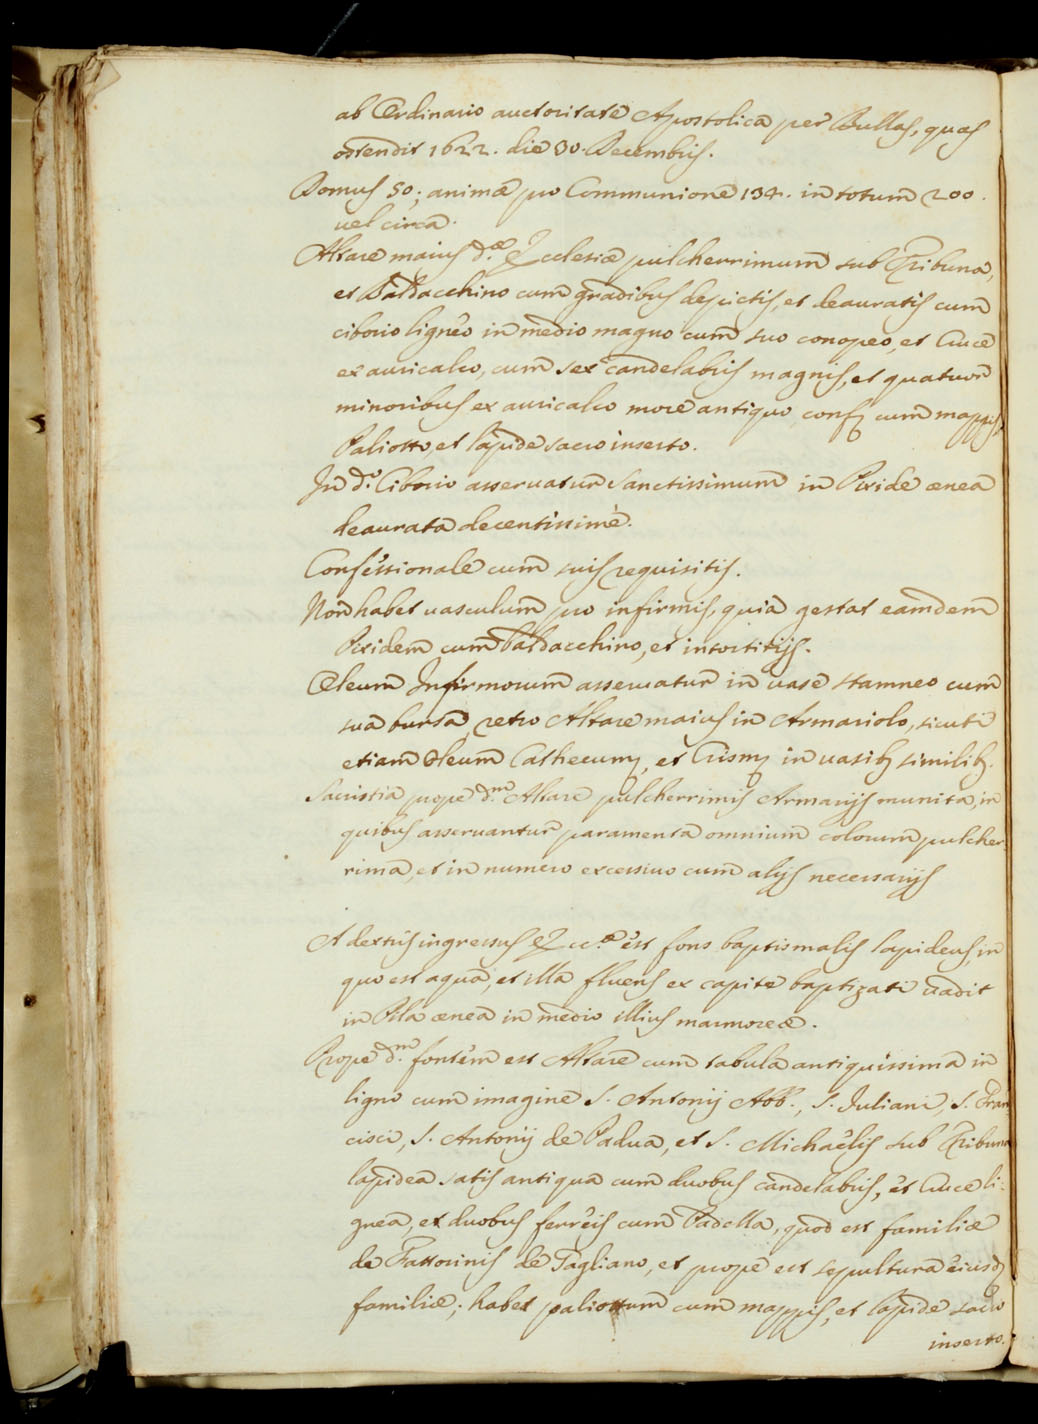 ab Ordinario auctoritate Apostolica per Bullas, quas
ostendit 1622. die 30. Decembris.
Domus 50; animæ pro Communione 134. in totum 200.
uel circa.
Altare maius d.æ Ecclesiæ pulcherrimum sub Tribuna,
et Baldacchino cum gradibus depictis, et deauratis cum
ciborio ligneo in medio magno cum suo conopeo, et Cruce
ex auricalco, cum sex candelabris magnis, et quatuor
minoribus ex auricalco more antiquo, cum mappis,
Paliotto, et lapide sacro inserto.
In d.o Ciborio asseruatur Sanctissimum in Pixide ænea
deaurata decentissimè.
Confessionale cum suis requisitis.
Non habet uasculum pro infirmis, quia gestat eamdem
Pixidem cum Baldacchino, et intortitijs.
Oleum Infirmorum asseruatur in uase stamneo cum
sua bursa retro Altare maius in Armariolo, sicuti
etiam Oleum Cathecum, et Crism in uasib similib.
Sacristia prope d.m Altare pulcherrimis Armarijs munita, in
quibus asseruantur paramenta omnium colorum pulcher:
rima, et in numero excessiuo cum alijs necessarijs
A dextris ingressus Ecc.æ est fons baptismalis lapideus, in
quo est aqua, et illa fluens ex capite baptizati uadit
in Pila ænea in medio illius marmoreæ.
Prope d.m fontem est Altare cum tabula antiquissima in
ligno cum imagine S. Antonij Abb., S. Juliani, S. Fran
cisci, S. Antonij de Padua, et S. Michaëlis sub Tribuna
lapidea satis antiqua cum duobus candelabris, et Cruce li:
gnea, et duobus ferreis cum Padella, quod est familiæ
de Fattorinis de Tagliano, et prope est sepultura eiusd
familiæ; habet paliottum cum mappis, et lapide sacro
inserto.